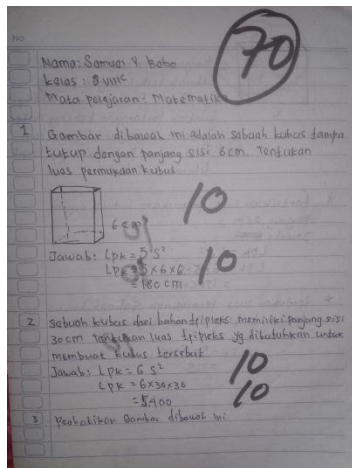 NO
70
Nama: Samuel Y Bobo
Kelas: 8 VIIIC
Mata pelajaran: Matematika
1 Gambar dibawah ini adalah sebuah kubus tanpa
tutup dengan panjang sisi 6 cm. Tentukan
luas permukaan kubus
10
6 cm
Jawab: Lpk = 5 s²
Lpk = 5 x 6 x 6
10
= 180 cm
2 Sebuah kubus dari bahan tripleks memiliki panjang sisi
30 cm Tentukan luas tripleks yg dibutuhkan untuk
membuat kubus tersebut
Jawab: Lpk = 6 s²
10
Lpk = 6x30x30
10
= 5400
3 Perhatikan Gambar dibawah ini